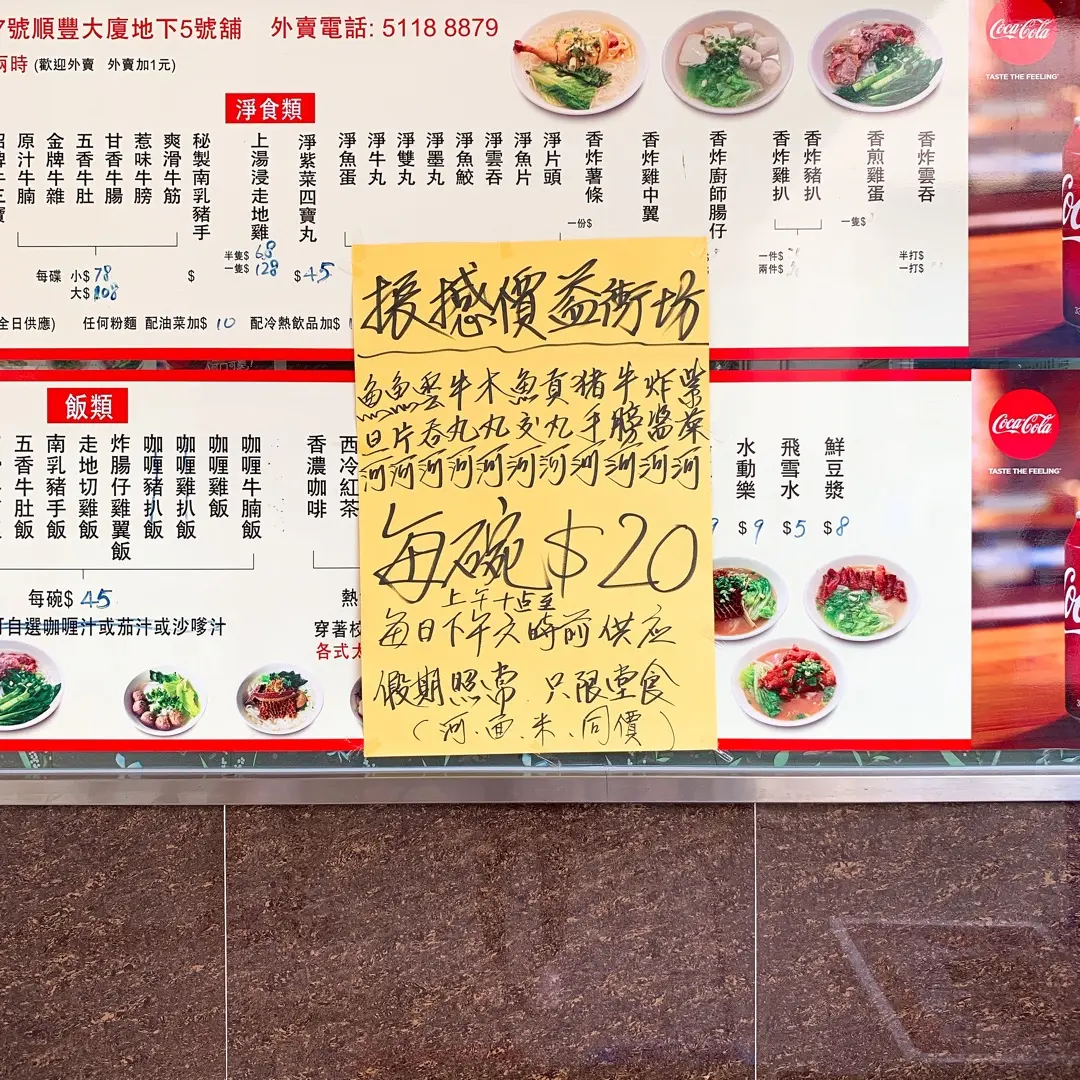 7號順豐大廈地下5號舖 外賣電話: 5118 8879
兩時 (歡迎外賣 外賣加1元)
淨食類
招牌牛三寶
原汁牛腩
金牌牛雜
五香牛肚
甘香牛腸
惹味牛膀
爽滑牛筋
秘製南乳豬手
上湯浸走地雞
淨紫菜四寶丸
淨魚蛋
淨牛丸
淨雙丸
淨墨丸
淨魚鮫
淨雲吞
淨魚片
淨片頭
香炸薯條
香炸雞中翼
香炸廚師腸仔
香炸雞扒
香炸豬扒
香煎雞蛋
香炸雲吞
每碟 小$ 78
大$ 108
$
半隻$ 68
一隻$ 128
$ 45
一份$
一件$
兩件$
一隻$
半打$
一打$
全日供應) 任何粉麵 配油菜加$ 10 配冷熱飲品加$
Coca-Cola
TASTE THE FEELING
飯類
五香牛肚飯
南乳豬手飯
走地切雞飯
炸腸仔雞翼飯
咖喱豬扒飯
咖喱雞扒飯
咖喱雞飯
咖喱牛腩飯
每碗$ 45
可自選咖喱汁或茄汁或沙嗲汁
香濃咖啡
西冷紅茶
熱
穿著校
各式
水動樂
飛雪水
鮮豆漿
$ 9
$ 5
$ 8
Coca-Cola
TASTE THE FEELING
振撼價益街坊
魚旦河
魚片河
雲吞河
牛丸河
木丸河
魚交河
貢丸河
猪手河
牛膀河
炸醬河
紫菜河
每碗$20
上午十点至
每日下午六時前供应
假期照常 只限堂食
(河.面.米.同價)